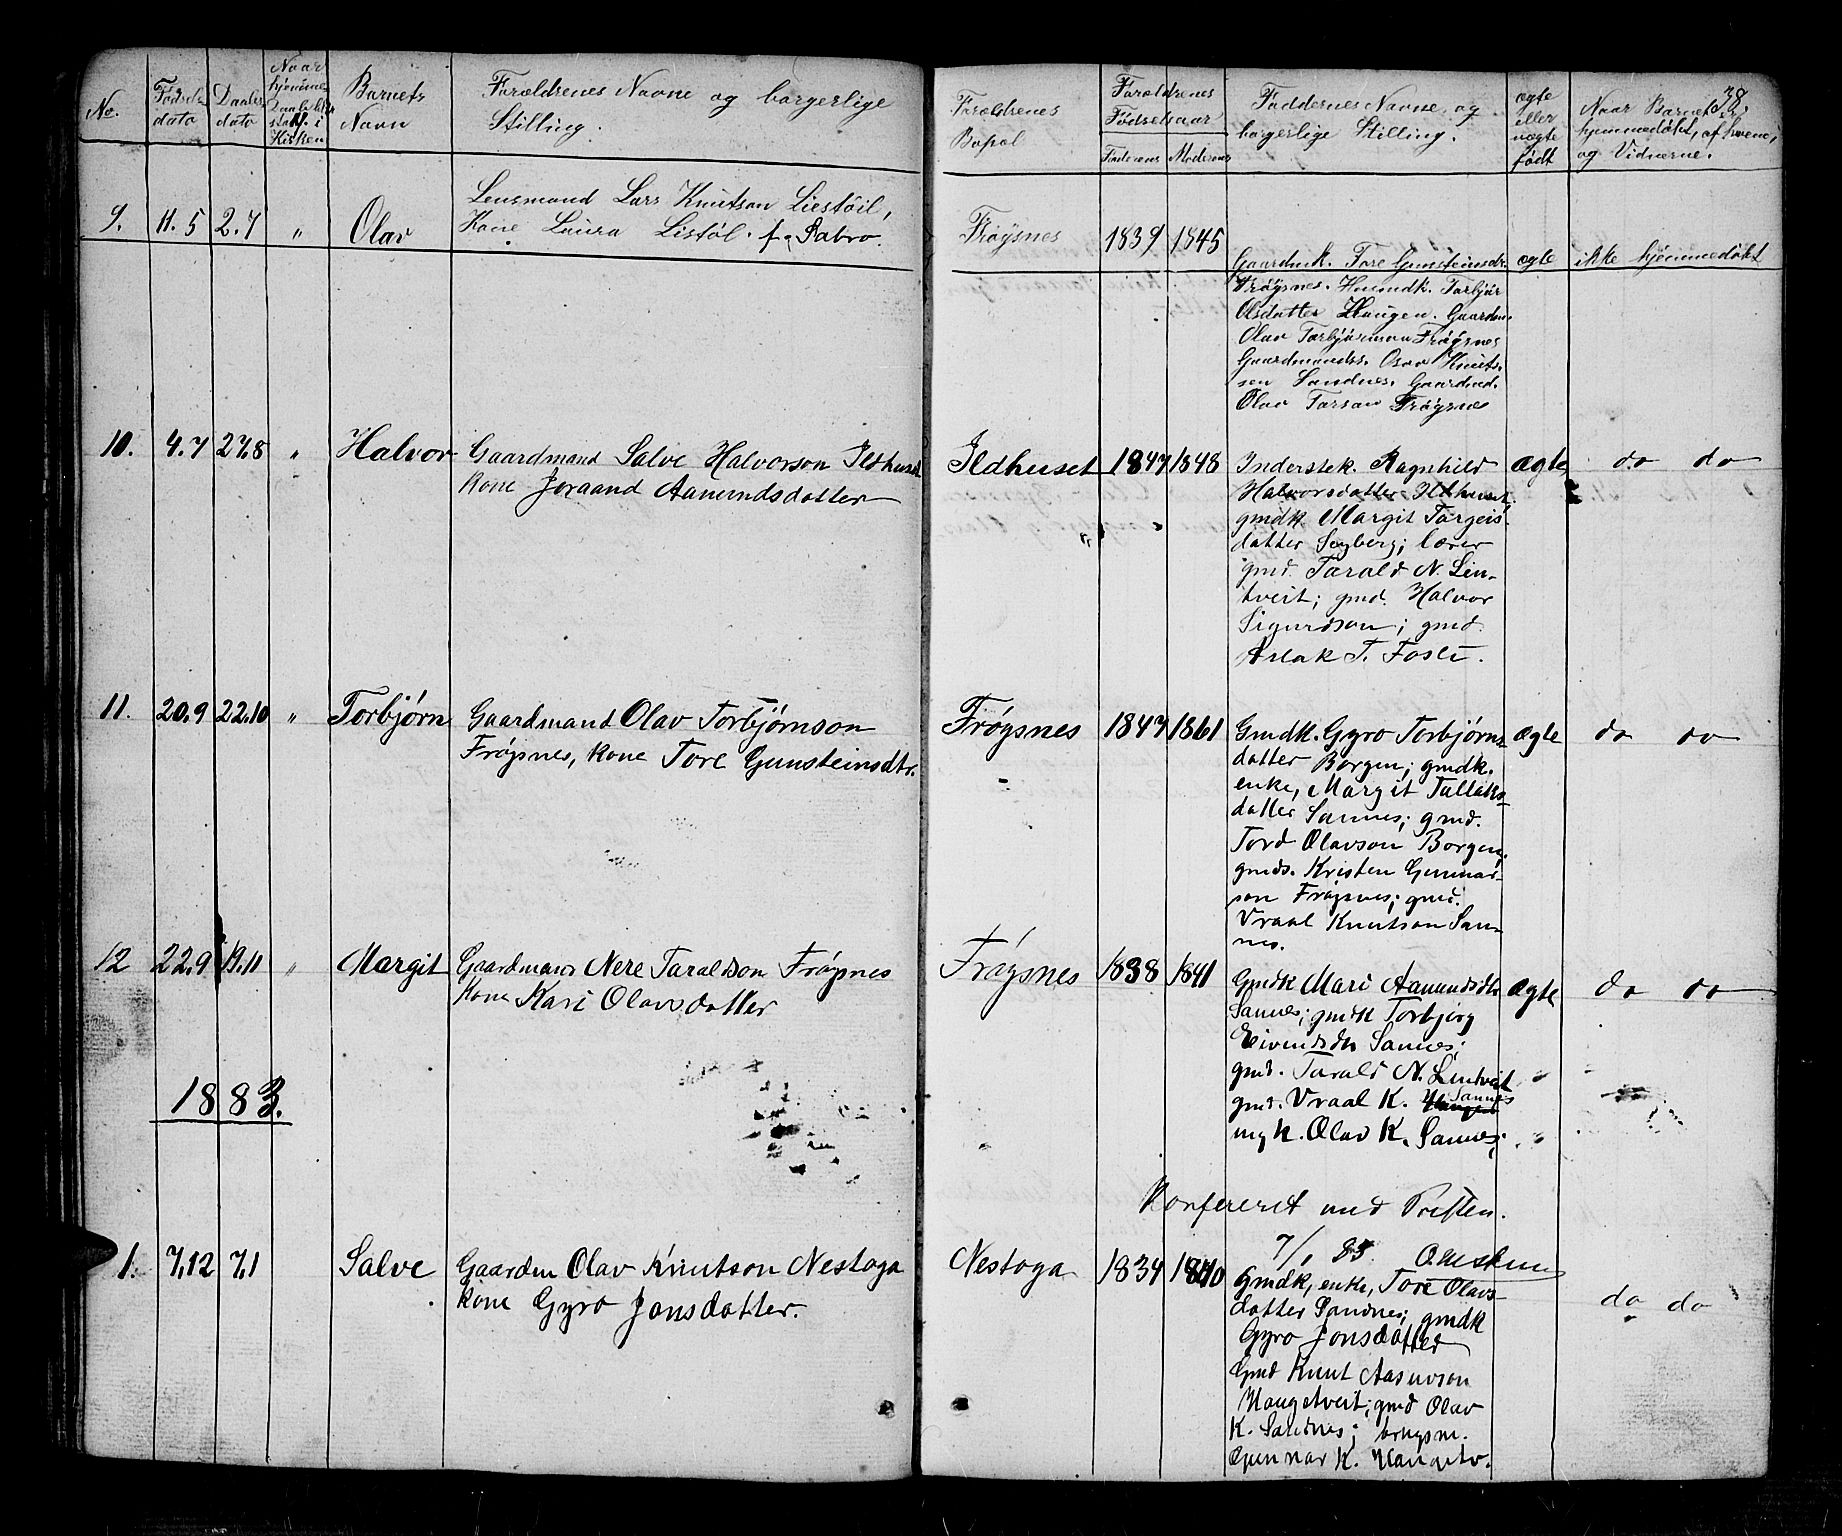 No.
Fødsels
dato
Daabs
dato
Naar
hjemme
Daab
stadf. i
Kirken
Barnets
Navn
Forældrenes Navne og borgerlige
Stilling.
Forældrenes
Bopæl
Forældrenes
Fødselsaar
Faderens Moderens
Faddernes Navne og
borgerlige Stilling.
ægte
eller
uægte
født
Naar Barnet er
hjemmedøbt, af hvem,
og Vidnerne.
38.
9. 11.5 2.7 " Olav
Lensmand Lars Knutson Liestöil,
Kone Laura Listöl. f. Sabro.
Frøysnes 1839 1845
Gaardmk. Tore Gunsteinsdr.
Frøysnes. Husmdk. Torbjør
Olsdatter Haugen. Gaardm.
Olav Torbjörnson Frøysnes
Gaardmands. Osov Knuts-
sen Sandnes. Gaardmd.
Olav Tarsan Frøysnes
ægte ikke hjemmedøbt
10. 4.7 27.8 " Halvor
Gaardmand Salve Halvorson Ildhuset
kone Joraand Aanundsdatter
Ildhuset 1847 1848
Inderstek. Ragnhild
Halvorsdatter Ildhuset,
gmdk. Margit Torgeis-
datter Sogberg; lærer
gmd. Tarald N. Lin-
tveit; gmd. Halvor
Sigurdson; gmd.
Aslak T. Fosli.
ægte do do
11. 20.9 22.10 " Torbjørn
Gaardmand Olav Torbjørnson
Frøysnes, kone Tore Gunsteinsdtr.
Frøysnes 1847 1861
Gmdk. Gyro Torbjørns
datter Borgen; gmdk.
enke, Margit Tallaks-
datter Sannes; gmd.
Tord Olavson Borgen;
gmds. Kristen Gunnar-
son Frøysnes; gmd.
Vraal Knutson San-
nes.
ægte do do
12 22.9 19.11 " Margit
Gaardmann Nere Taraldson Frøysnes
Kone Kari Olavsdatter
Frøysnes 1838 1841
Gmdk Mari Aanundsdtr
Sannes; gmdk Torbjørg
Eivindsdtr Sannes;
gmd. Tarald N. Lintveit
gmd. Vraal K. Sannes
ungk. Olav K. Sannes;
ægte do do
1883.
Konfereret med Presten.
7/1 83.
1. 7.12 7.1 Salve
Gaarden Olav Knutson Nestoga
kone Gyro Jonsdatter.
Nestoga 1834 1840
Gmdk, enke, Tore Olavs-
datter Sandnes; gmdk
Gyro Jonsdatter
Gmd Knut Aasuvson
Haugetveit; gmd Olav
K. Sandnes; brugsm.
Gunnar K. Haugetv.
do do